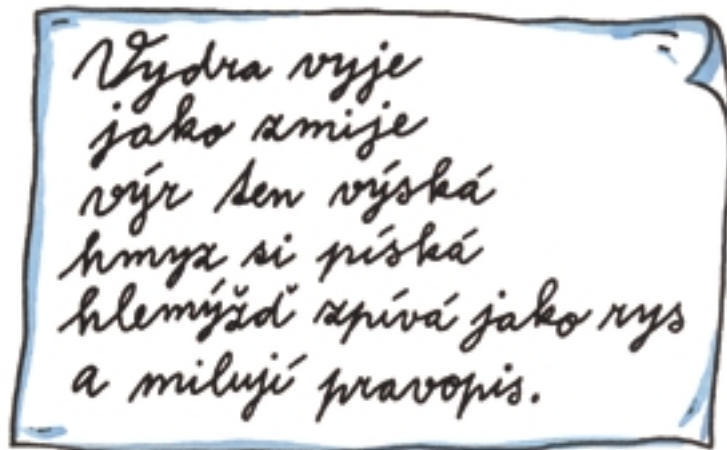 Vydra vyje
jako zmije
výr ten výská
hmyz si píská
hlemýžď zpívá jako rys
a milují pravopis.